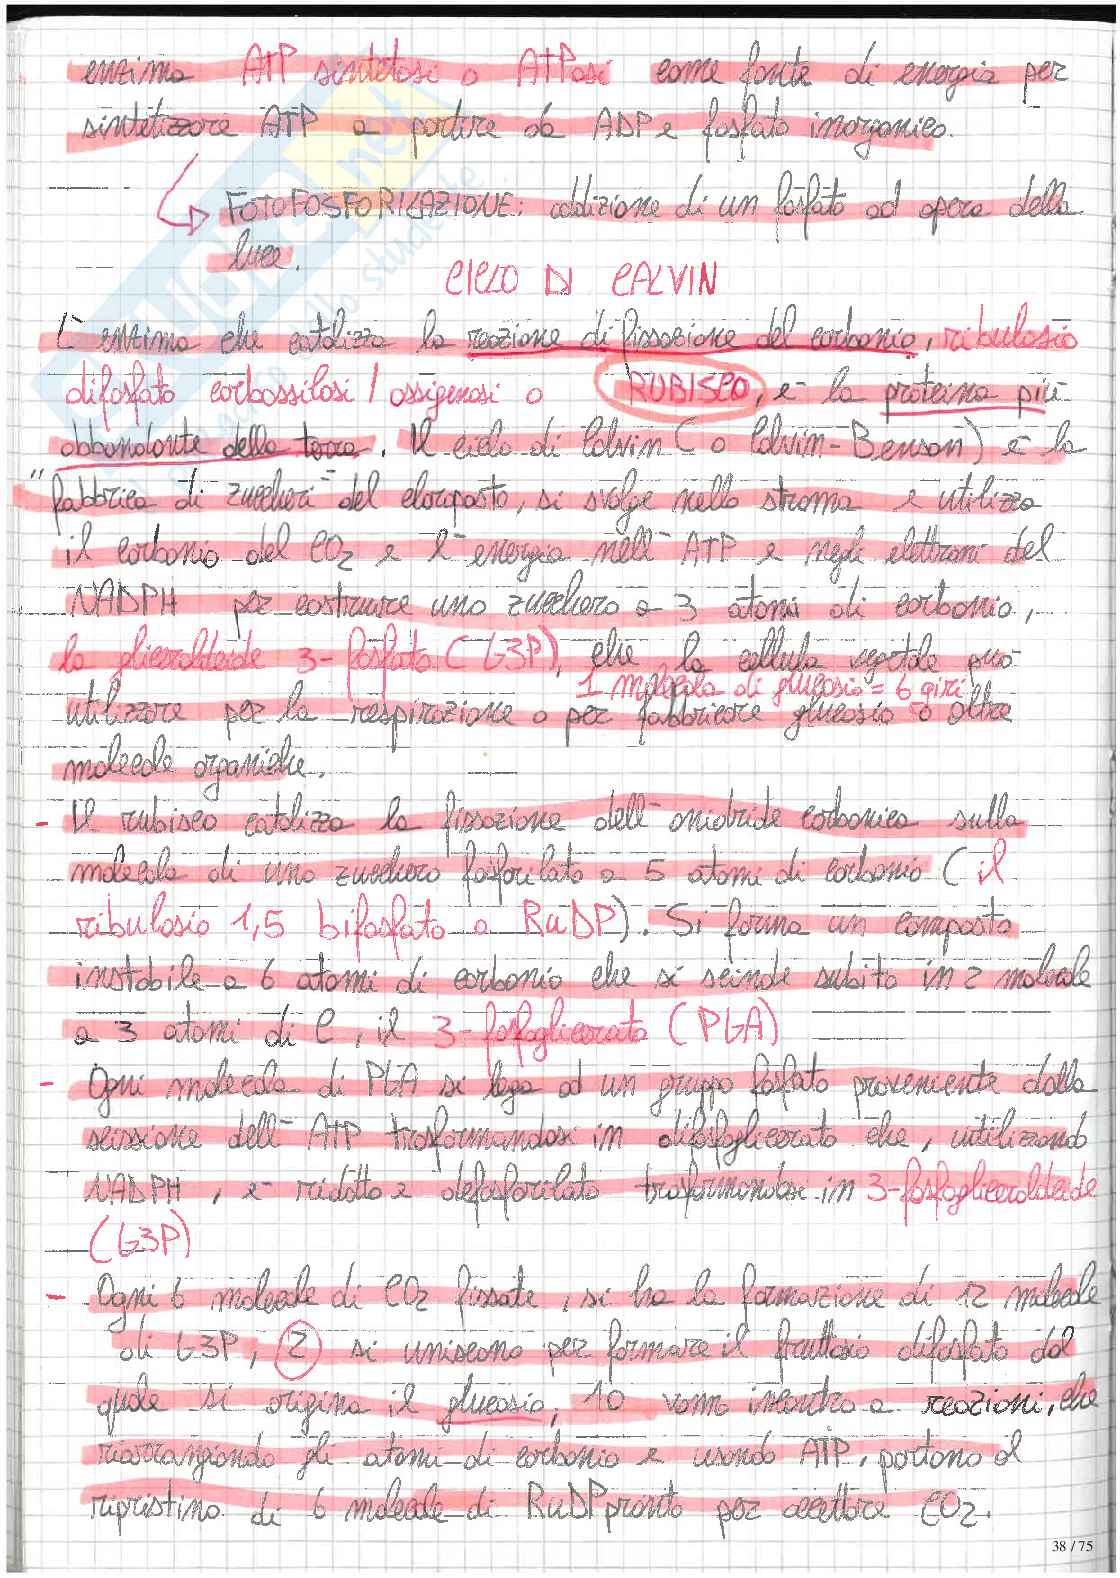 enzima ATP sintetasi o ATPasi come fonte di energia per
sintetizzare ATP a partire da ADP e fosfato inorganico.
FOTOFOSFORILAZIONE: addizione di un fosfato ad opera della
luce.
CICLO DI CALVIN
L'enzima che catalizza la reazione di fissazione del carbonio, ribulosio
difosfato carbossilasi / ossigenasi o RUBISCO, è la proteina più
abbondante della terra. Il ciclo di Calvin (o Calvin-Benson) è la
"fabbrica di zuccheri" del cloropasto, si svolge nello stroma e utilizza
il carbonio del CO2 e l'energia nell'ATP e negli elettroni del
NADPH per costruire uno zucchero a 3 atomi di carbonio,
la gliceraldeide 3-fosfato (G3P), che la cellula vegetale può
1 molecola di glucosio = 6 giri
utilizzare per la respirazione o per fabbricare glucosio o altre
molecole organiche.
- Il rubisco catalizza la fissazione dell'anidride carbonica sulla
molecola di uno zucchero fosforilato a 5 atomi di carbonio (il
ribulosio 1,5 bifosfato o RuDP). Si forma un composto
instabile a 6 atomi di carbonio che si scinde subito in 2 molecole
a 3 atomi di C, il 3-fosfoglicerato (PGA)
- Ogni molecola di PGA si lega ad un gruppo fosfato proveniente dalla
scissione dell'ATP trasformandosi in difosfoglicerato che, utilizzando
NADPH, è ridotto e defosforilato trasformandosi in 3-fosfogliceraldeide
(G3P)
- Ogni 6 molecole di CO2 fissate, si ha la formazione di 12 molecole
di G3P, 2 si uniscono per formare il fruttosio difosfato dal
quale si origina il glucosio, 10 vanno incontro a reazioni, che
riarrangiando gli atomi di carbonio e usando ATP, portano al
ripristino di 6 molecole di RuDP pronto per accettare CO2.
38 / 75